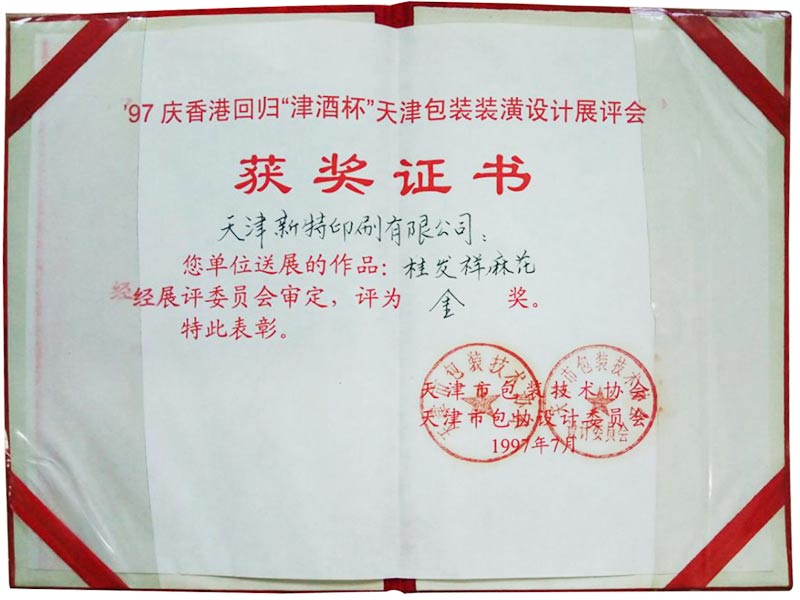 '97 庆香港回归“津酒杯”天津包装装潢设计展评会
获奖证书
天津新特印刷有限公司：
您单位送展的作品：桂发祥麻花
经经展评委员会审定，评为 金 奖。
特此表彰。
天津市包装技术协会
天津市包协设计委员会
1997年7月
市包装技术协
市包装技术
设计委员会